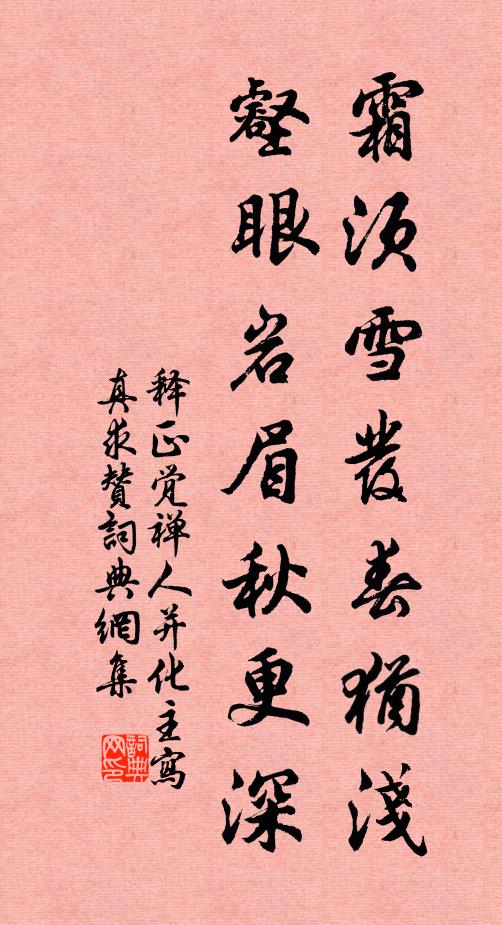 霜须雪发春犹浅
壑眼岩眉秋更深
释正觉禅人并化主写
真求赞词典网集
词典
网印